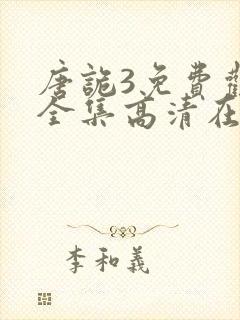 唐詭3免費觀
全集高清在
李和義